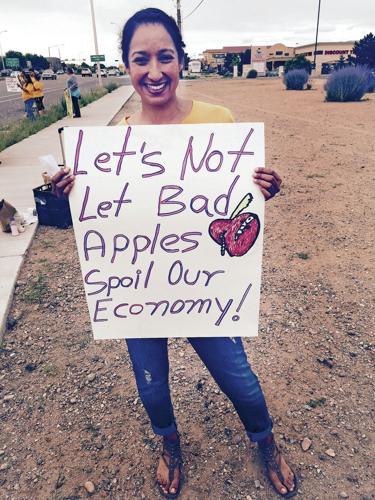 Let's Not
Let Bad
Apples
Spoil Our
Economy!
DISCOUNT